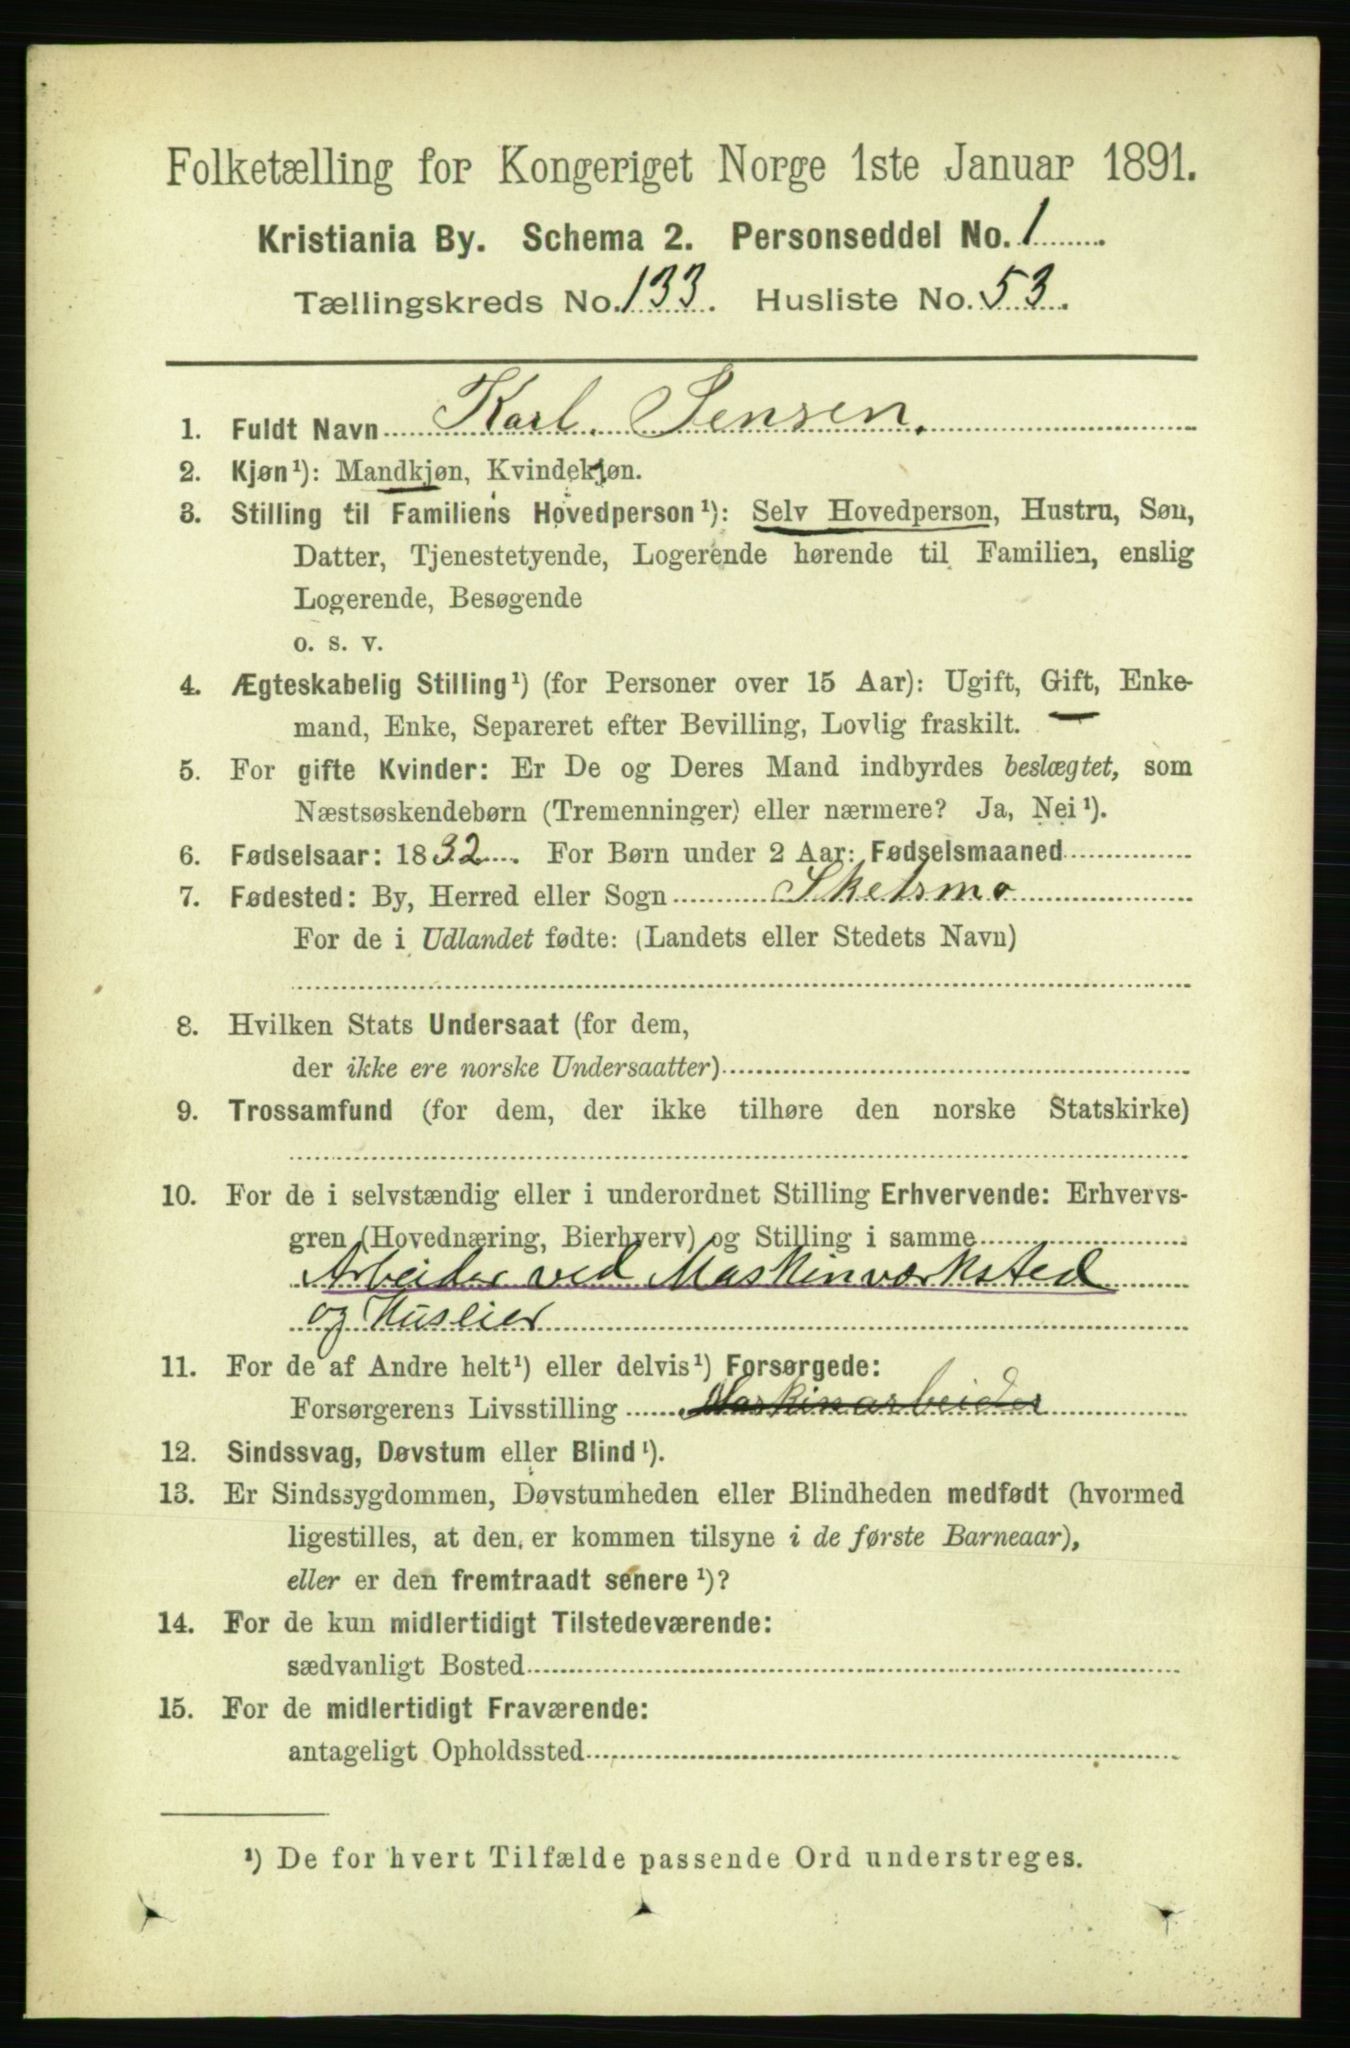 Folketælling for Kongeriget Norge 1ste Januar 1891.
Kristiania By. Schema 2. Personseddel No. 1
Tællingskreds No. 133. Husliste No. 53.
1. Fuldt Navn Karl Jensen.
2. Kjøn¹): Mandkjøn, Kvindekjøn.
3. Stilling til Familiens Hovedperson¹): Selv Hovedperson, Hustru, Søn,
Datter, Tjenestetyende, Logerende hørende til Familien, enslig
Logerende, Besøgende
o. s. v.
4. Ægteskabelig Stilling¹) (for Personer over 15 Aar): Ugift, Gift, Enke-
mand, Enke, Separeret efter Bevilling, Lovlig fraskilt.
5. For gifte Kvinder: Er De og Deres Mand indbyrdes beslægtet, som
Næstsøskendebørn (Tremenninger) eller nærmere? Ja, Nei¹).
6. Fødselsaar: 1832. For Børn under 2 Aar: Fødselsmaaned
7. Fødested: By, Herred eller Sogn Skedsmo
For de i Udlandet fødte: (Landets eller Stedets Navn)
8. Hvilken Stats Undersaat (for dem,
der ikke ere norske Undersaatter)
9. Trossamfund (for dem, der ikke tilhøre den norske Statskirke)
10. For de i selvstændig eller i underordnet Stilling Erhvervende: Erhvervs-
gren (Hovednæring, Bierhverv) og Stilling i samme
Arbeider ved Maskinværksted
og Huseier
11. For de af Andre helt¹) eller delvis¹) Forsørgede:
Forsørgerens Livsstilling Maskinarbeider
12. Sindssvag, Døvstum eller Blind¹).
13. Er Sindssygdommen, Døvstumheden eller Blindheden medfødt (hvormed
ligestilles, at den er kommen tilsyne i de første Barneaar),
eller er den fremtraadt senere¹)?
14. For de kun midlertidigt Tilstedeværende:
sædvanligt Bosted
15. For de midlertidigt Fraværende:
antageligt Opholdssted
¹) De for hvert Tilfælde passende Ord understreges.